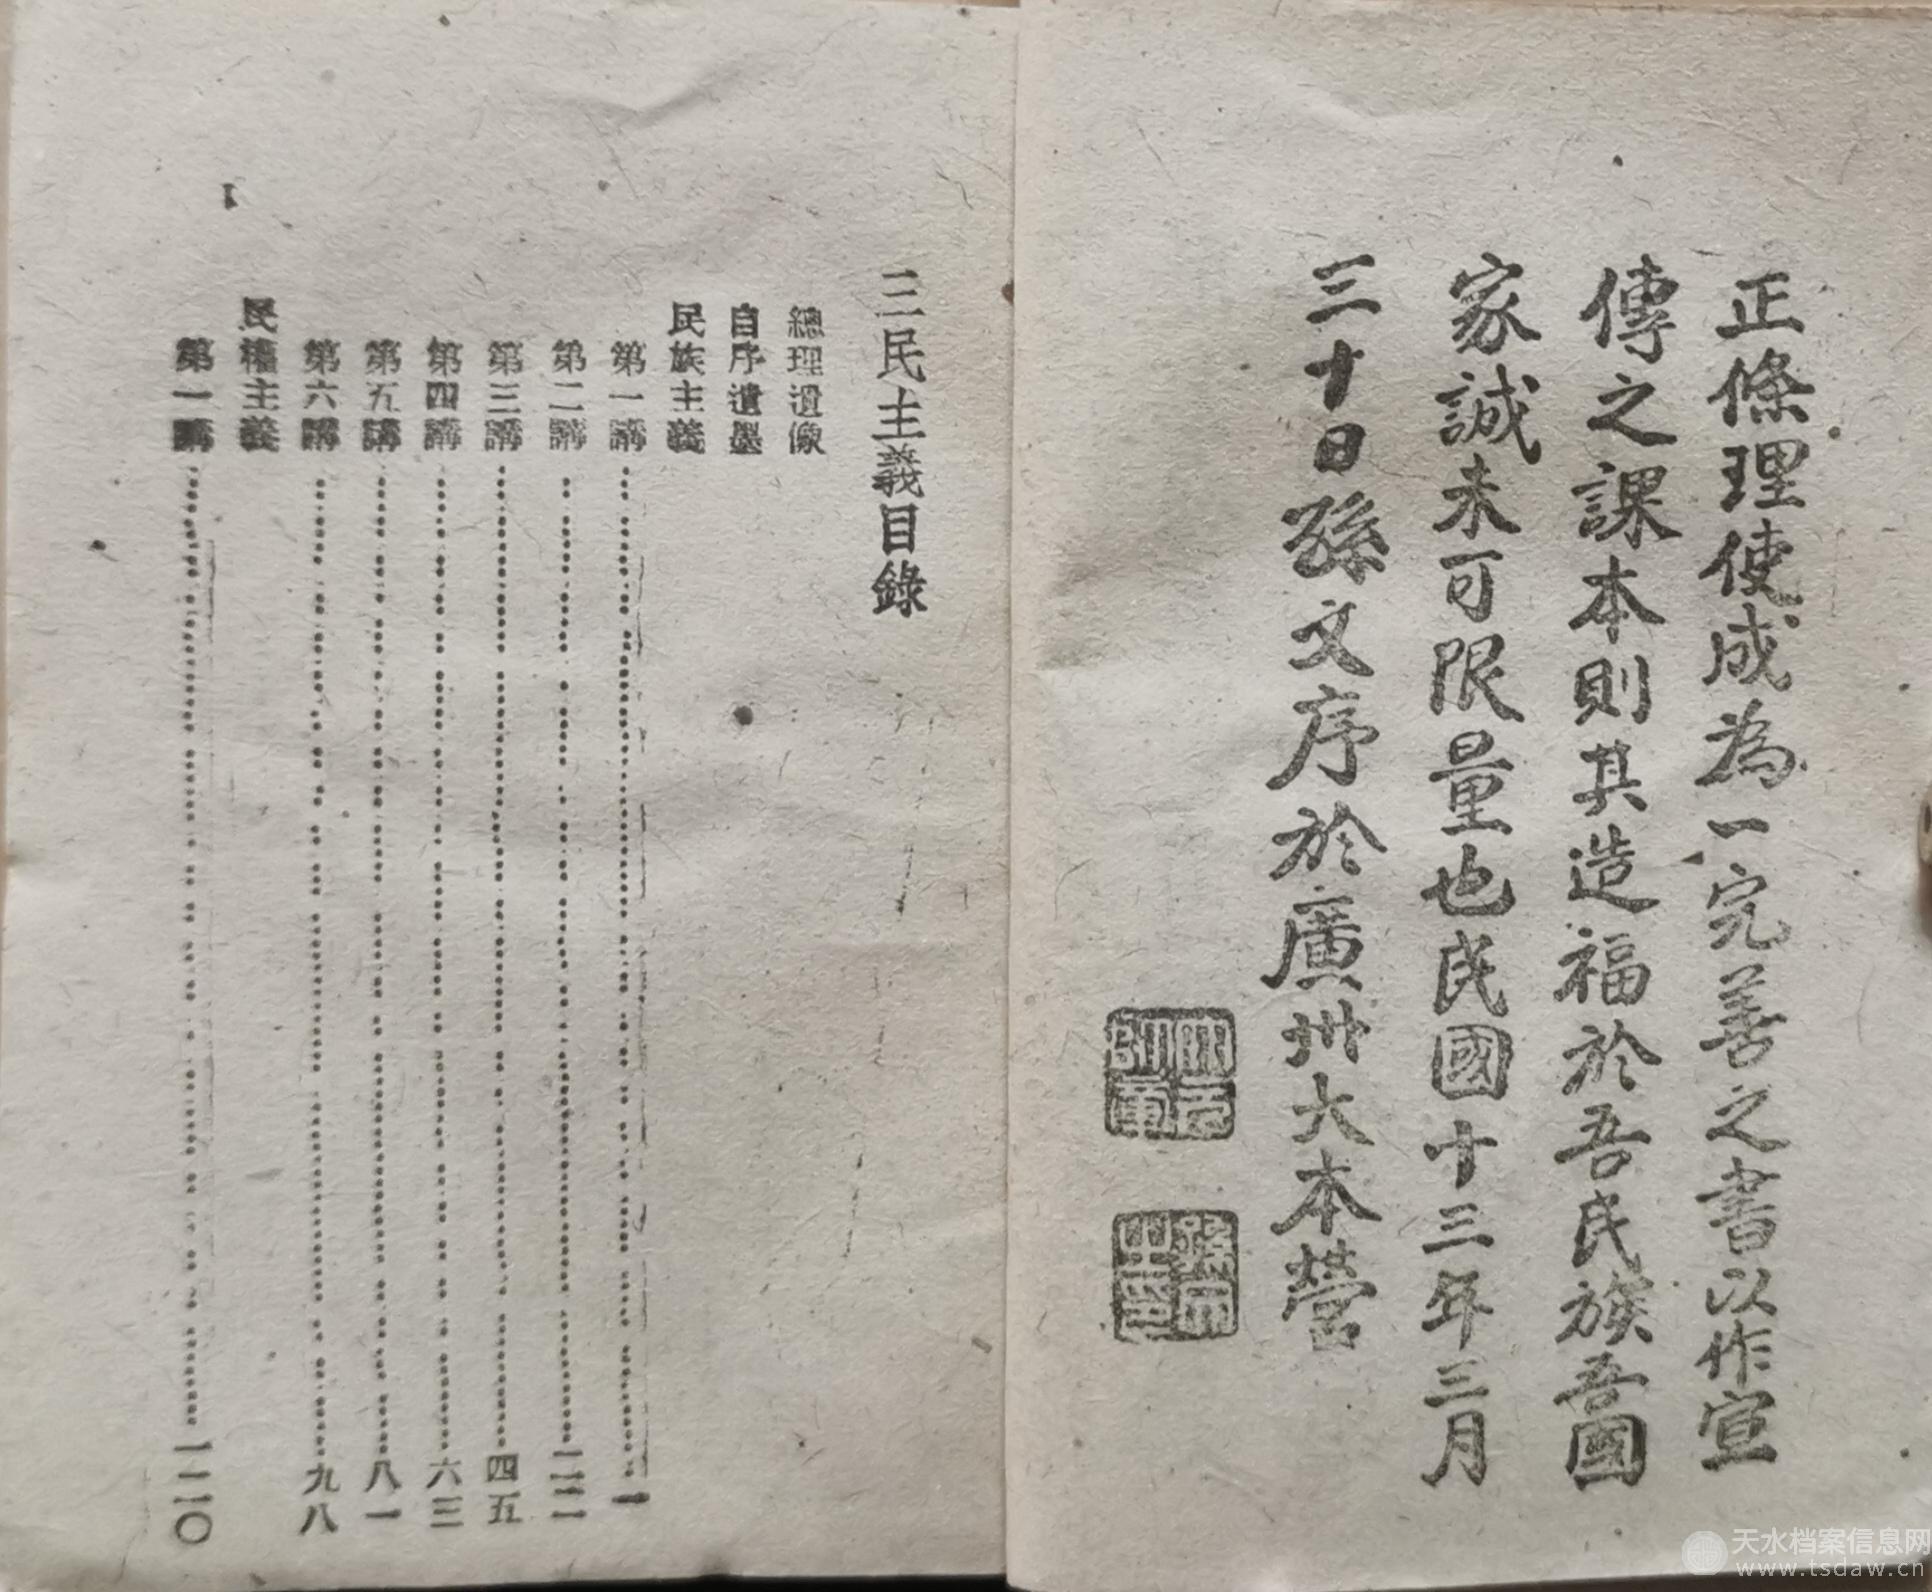 正條理使成為一完善之書以作宣
傳之課本則其造福於吾民族吾國
家誠未可限量也民國十三年三月
三十日孫文序於廣州大本營
大元帥章
孫文之印
三民主義目錄
總理遺像
自序遺墨
民族主義
第一講 一
第二講
第三講 四五
第四講 六三
第五講 八一
第六講 九八
民權主義
第一講 一二〇
天水档案信息网
www.tsdaw.cn